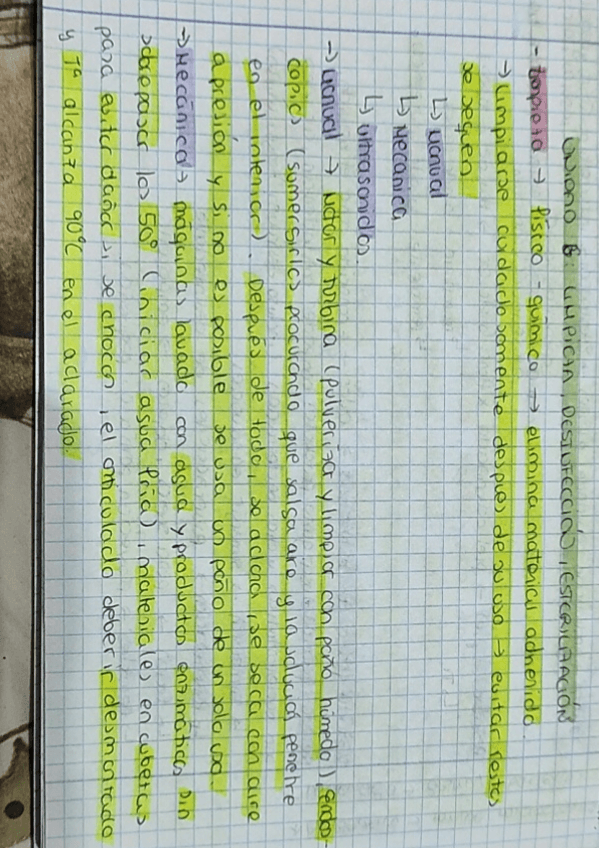 Unidad 6: LIMPIEZA, DESINFECCIÓN, ESTERILIZACIÓN
- Limpieza → físico - químico → elimina material adherido.
→ Limpiarse cuidadosamente después de su uso → evitar restos
se sequen
↳ Manual
↳ Mecánica
↳ Ultrasonidos
→ Manual → Motor y turbina (pulverizar y limpiar con paño húmedo), endos-
copios (sumergirlos procurando que salga aire y la solución penetre
en el interior). Después de todo, se aclara, se seca con aire
a presión y si no es posible se usa un paño de un solo uso
→ Mecánica → máquinas lavado con agua y productos enzimáticos sin
sobrepasar los 50º (iniciar agua fría), materiales en cubetas
para evitar daños si se chocan, el articulado debe ir desmontado
y Tª alcanza 90ºC en el aclarado.